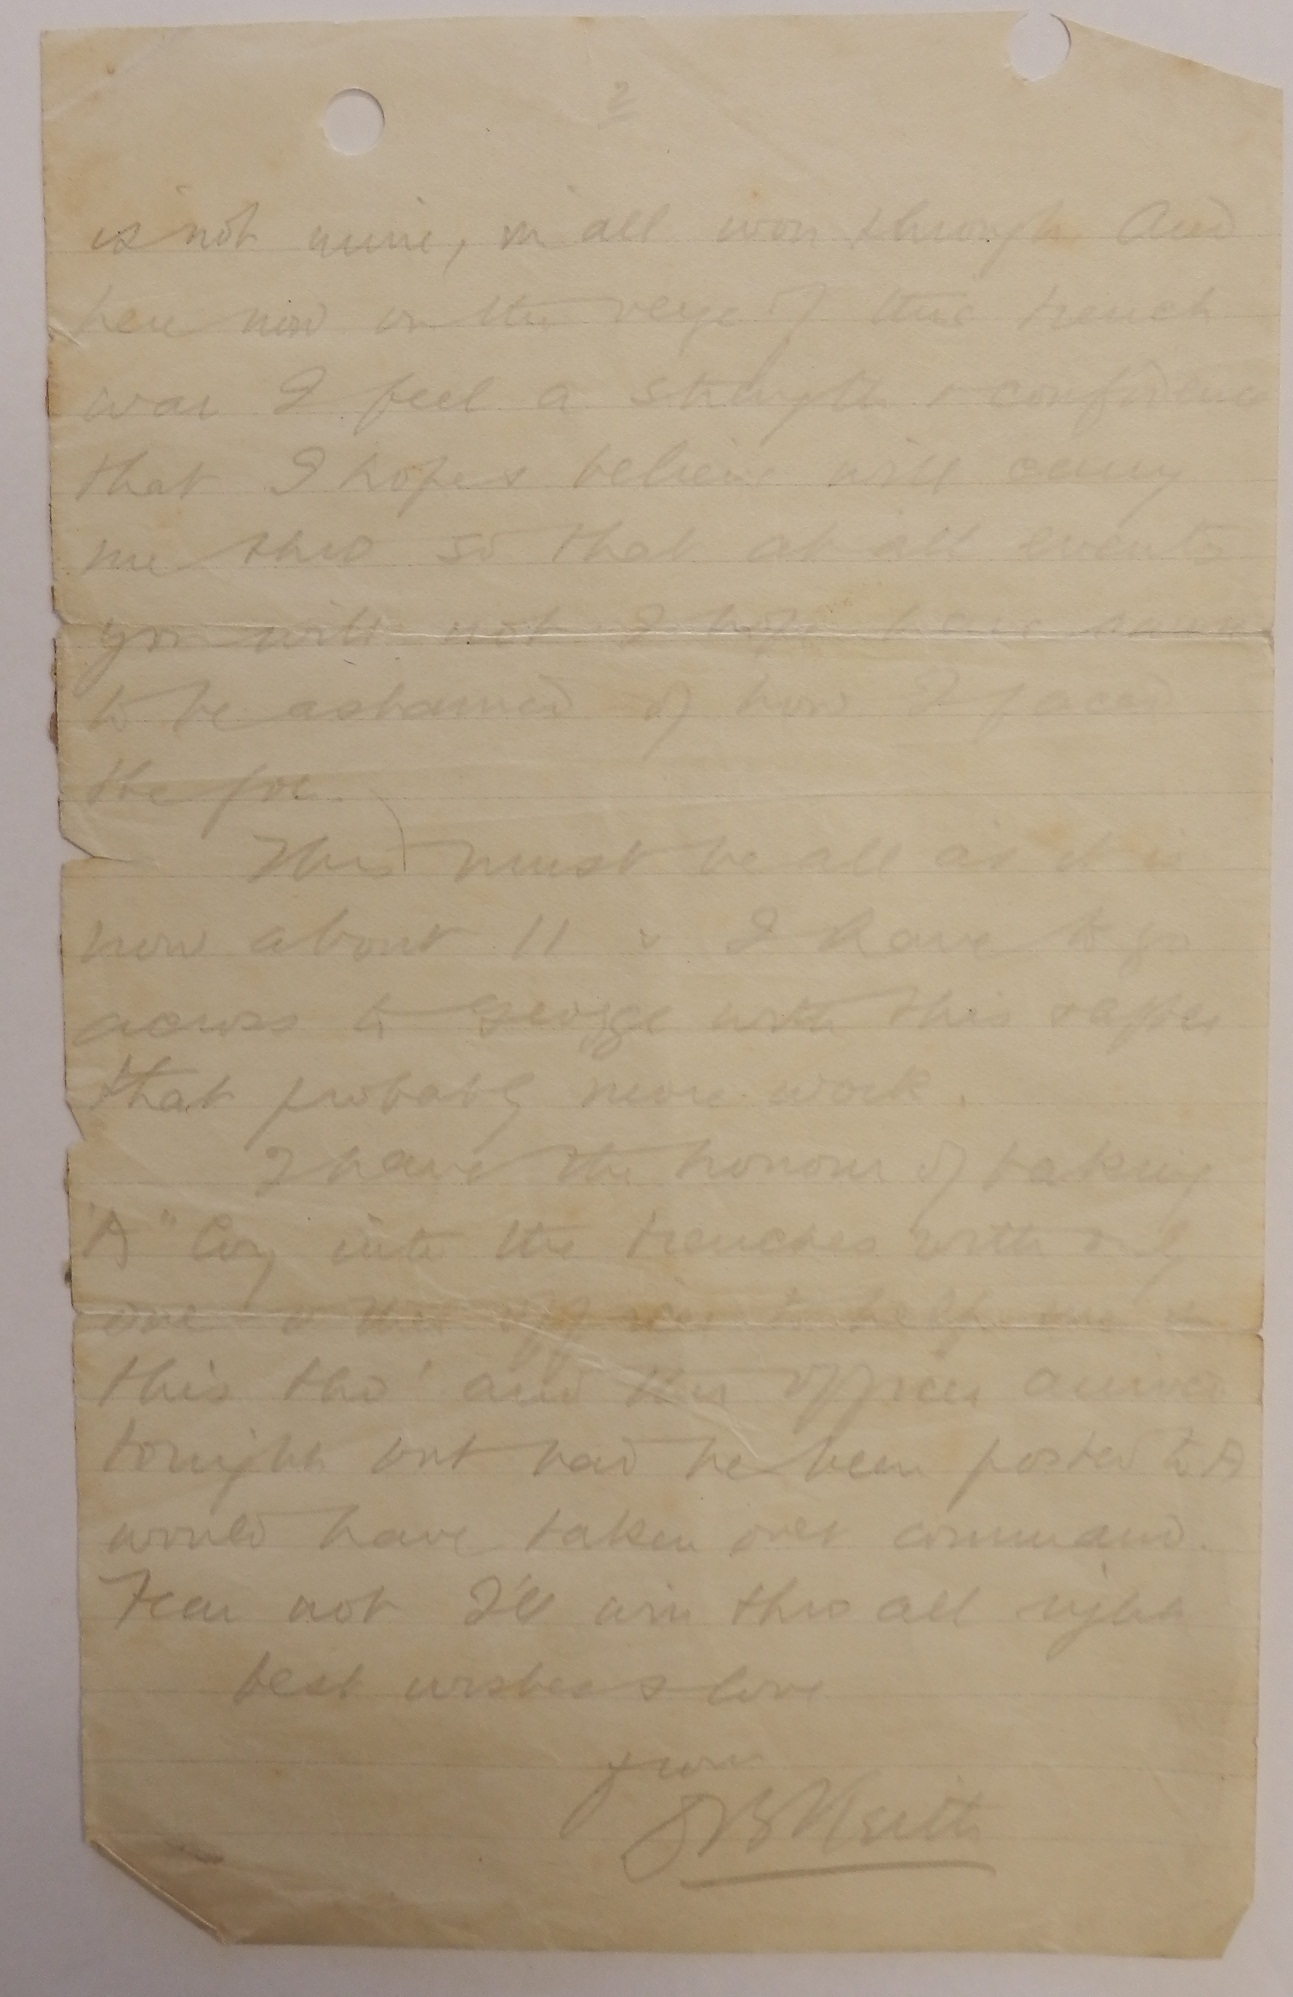 2
is not mine, in all won through. And
here now on the verge of this trench
war I feel a strength & confidence
that I hope & believe will carry
me thro so that at all events
you will not I hope have
to be ashamed of how I faced
the foe.
This must be all as it is
now about 11 & I have to go
across to George with this & after
that probably more work.
I have the honour of taking
"A" Coy into the trenches with only
one other officer to help me in
this tho' another officer arrived
tonight but had he been posted to A
would have taken over command.
Fear not I'll win thro all right
best wishes & love
from
Keith